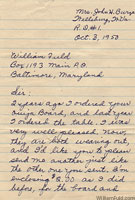 Mrs. John W. Burge
Wellsburg, W.Va.
R.D.#1.
Oct. 3, 1950
William Fuld
Box 193 Main P.O
Baltimore, Maryland
Sir:
2 years ago I ordered your
Ouija Board, and last year I
ordered the table. I was
very well pleased. Now,
they are both wearing out,
and I'd like you to please
send me another just like
the other one you sent. I'm
enclosing $ as I did
before, for the Board and
WilliamFuld.com